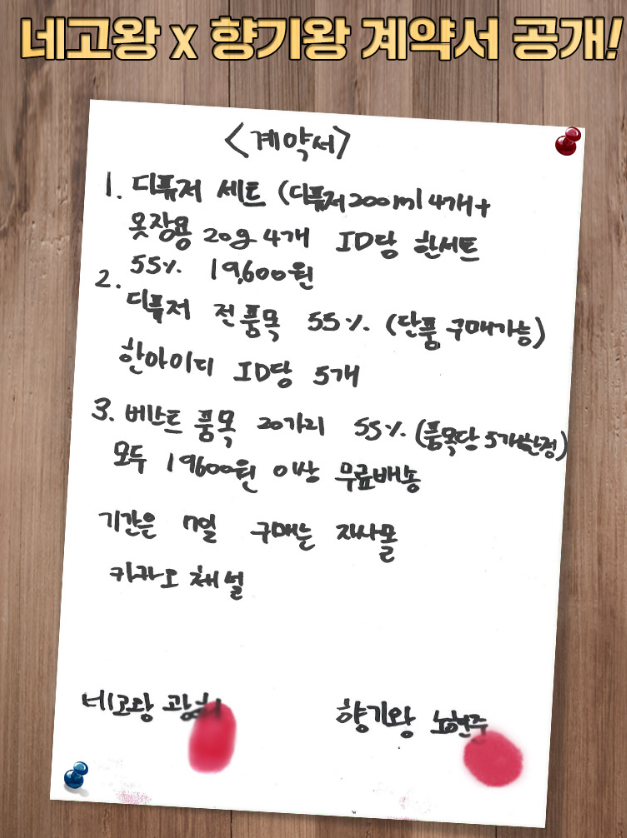 네고왕 x 향기왕 계약서 공개!
<계약서>
1. 디퓨저 세트 (디퓨저 200ml 4개+
옷장용 20g 4개 ID당 한세트
55% 19,600원
2.
디퓨저 전품목 55%. (단품 구매가능)
한아이디 ID당 5개
3. 버란트 품목 20가리 55%. (품목당 5개한정)
모두 19600원 이상 무료배송
기간은 7일 구매는 자사몰
카카오 채널
네고왕 광희
향기왕 노현주